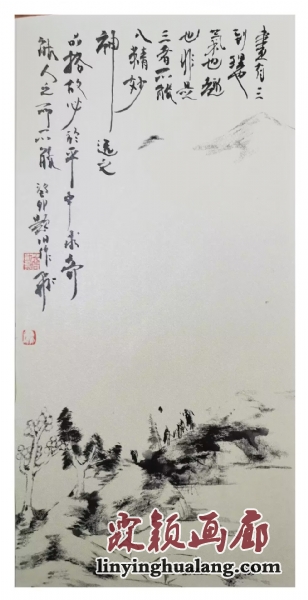 畫有三
到理也
氣也趣
也非是
三者不能
入精妙
神逸之
品格故必於平中求奇
能人之所不能 癸卯題旧作
霖颖画廊
linyinghualang.com